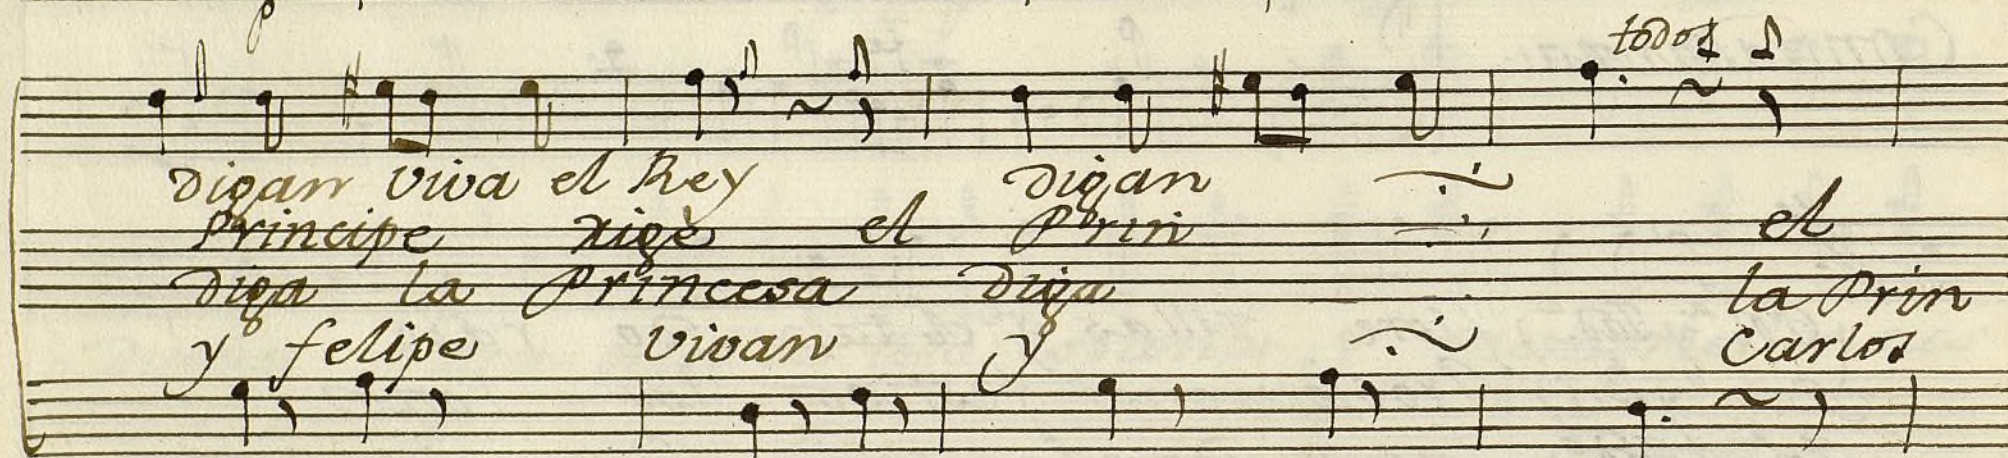 todos
digan viva el Rey digan
Principe rige el Prin el
diga la Princesa diga la Prin
y felipe vivan y Carlos